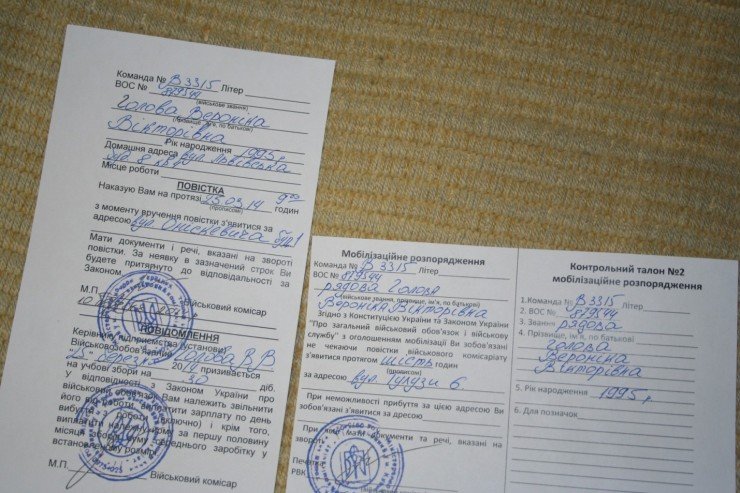 Команда № В 3315 Літер
ВОС № 879544
(військове звання)
Голова Вероніка
(прізвище, ім'я, по батькові)
Вікторівна
Рік народження 1995 р
Домашня адреса вул Львівська
буд 8 кв
Місце роботи
ПОВІСТКА
Наказую Вам на протязі 25.03.14 9 00 годин
(прописом)
з моменту вручення повістки з'явитися за
адресою вул Онискевича буд 1
Мати документи і речі, вказані на звороті
повістки. За неявку в зазначений строк Ви
будете притягнуто до відповідальності за
Законом
Військовий комісар
М.П.
ПОВІДОМЛЕННЯ
Керівнику підприємства (установи)
Військовозобов'язаний Голова В.В.
20 призивається
на учбові збори на 10 діб.
У відповідності з Законом України про
військовий обов'язок Вам належить звільнити
його від роботи, виплатити зарплату по день
вибуття з роботи (включно) і крім того,
виплатити належну йому за першу половину
місяця зборів суму середнього заробітку у
встановленому розмірі.
М.П. Військовий комісар
Мобілізаційне розпорядження
Команда № В 3315 Літер
ВОС № 879544
рядова Голова
(Військове звання, прізвище, ім'я, по батькові)
Вероніка Вікторівна
Згідно з Конституцією України та Законом України
"Про загальний військовий обов'язок і військову
службу" з оголошенням мобілізації Ви зобов'язані
не чекаючи повістки військового комісаріату
з'явитися протягом шість годин
(прописом)
за адресою вул. 6
При неможливості прибуття за цією адресою Ви
зобов'язані з'явитися за адресою
При собі мати документи та речі, вказані на
звороті
Печатка
РВК
Контрольний талон №2
мобілізаційне розпорядження
1. Команда № В 3315
2. ВОС № 879544
3. Звання рядова
4. Прізвище, ім'я, по батькові
Голова
Вероніка
Вікторівна
5. Рік народження 1995 р
6. Для позначок